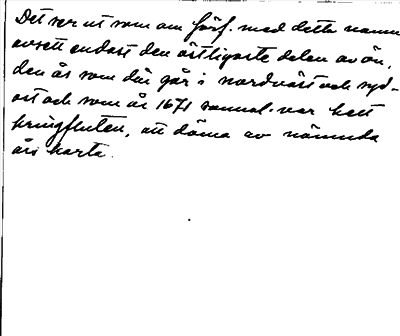 Det ser ut som om förf. med detta namn
avsett endast den östligaste delen av ön,
den ås som där går i nordväst och syd-
ost och som år 1671 sannol. var helt
kringfluten, att döma av nämnda
års karta.